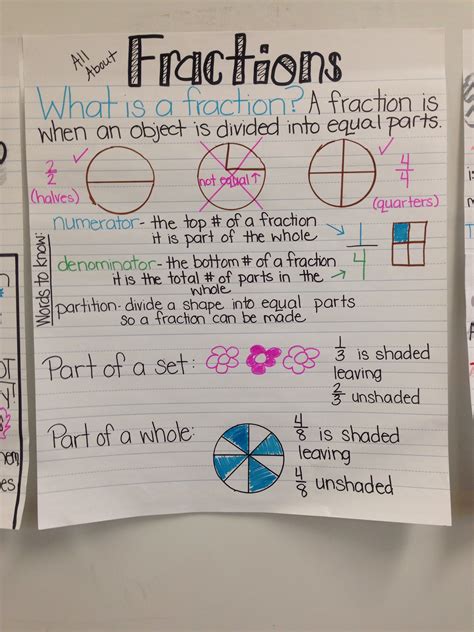 All About
Fractions
What is a fraction? A fraction is
when an object is divided into equal parts.
2/2
(halves)
not equal ↑
4/4
(quarters)
Words to know:
numerator- the top # of a fraction
it is part of the whole
1/4
denominator- the bottom # of a fraction
it is the total # of parts in the
whole
partition- divide a shape into equal parts
so a fraction can be made
Part of a set:
1/3 is shaded
leaving
2/3 unshaded
Part of a whole:
4/8 is shaded
leaving
4/8 unshaded